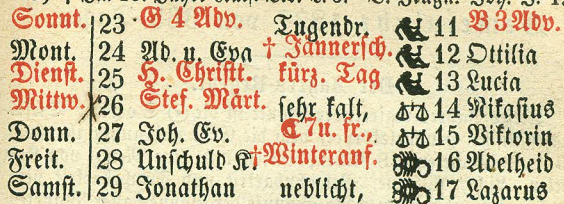 Sonnt. 23 G 4 Adv. Tugendr. 11 B 3 Adv.
Mont. 24 Ad. u. Eva † Jännersch. 12 Ottilia
Dienst. 25 H. Christt. kürz. Tag 13 Lucia
Mittw. 26 Stef. Märt. sehr kalt, 14 Nikasius
Donn. 27 Joh. Ev. ☾ 7 u. fr., 15 Viktorin
Freit. 28 Unschuld K. † Winteranf. 16 Adelheid
Samst. 29 Jonathan neblicht, 17 Lazarus